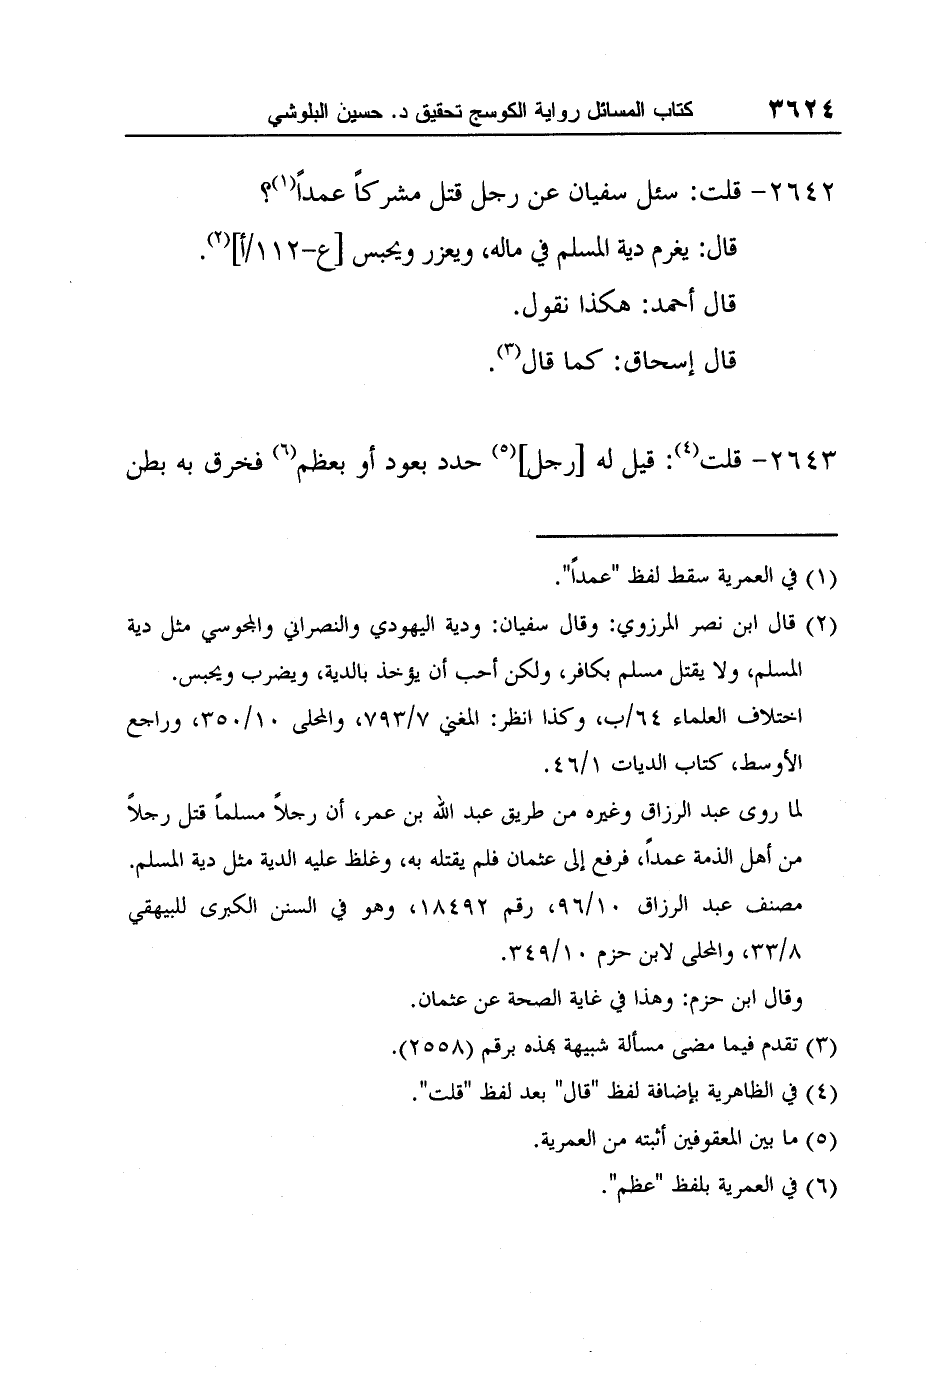 ٣٦٢٤ كتاب المسائل رواية الكوسج تحقيق د. حسين البلوشي
٢٦٤٢- قلت: سئل سفيان عن رجل قتل مشركاً عمداً(١)؟
قال: يغرم دية المسلم في ماله، ويعزر ويحبس [ع-١١٢/أ](٢).
قال أحمد: هكذا نقول.
قال إسحاق: كما قال(٣).
٢٦٤٣- قلت(٤): قيل له [رجل](٥) حدد بعود أو بعظم(٦) فخرق به بطن
(١) في العمرية سقط لفظ "عمداً".
(٢) قال ابن نصر المرزوي: وقال سفيان: ودية اليهودي والنصراني والمجوسي مثل دية
المسلم، ولا يقتل مسلم بكافر، ولكن أحب أن يؤخذ بالدية، ويضرب ويحبس.
اختلاف العلماء ٦٤/ب، وكذا انظر: المغني ٧٩٣/٧، والمحلى ٣٥٠/١٠، وراجع
الأوسط، كتاب الديات ٤٦/١.
لما روى عبد الرزاق وغيره من طريق عبد الله بن عمر، أن رجلاً مسلماً قتل رجلاً
من أهل الذمة عمداً، فرفع إلى عثمان فلم يقتله به، وغلظ عليه الدية مثل دية المسلم.
مصنف عبد الرزاق ٩٦/١٠، رقم ١٨٤٩٢، وهو في السنن الكبرى للبيهقي
٣٣/٨، والمحلى لابن حزم ٣٤٩/١٠.
وقال ابن حزم: وهذا في غاية الصحة عن عثمان.
(٣) تقدم فيما مضى مسألة شبيهة بهذه برقم (٢٥٥٨).
(٤) في الظاهرية بإضافة لفظ "قال" بعد لفظ "قلت".
(٥) ما بين المعقوفين أثبته من العمرية.
(٦) في العمرية بلفظ "عظم".